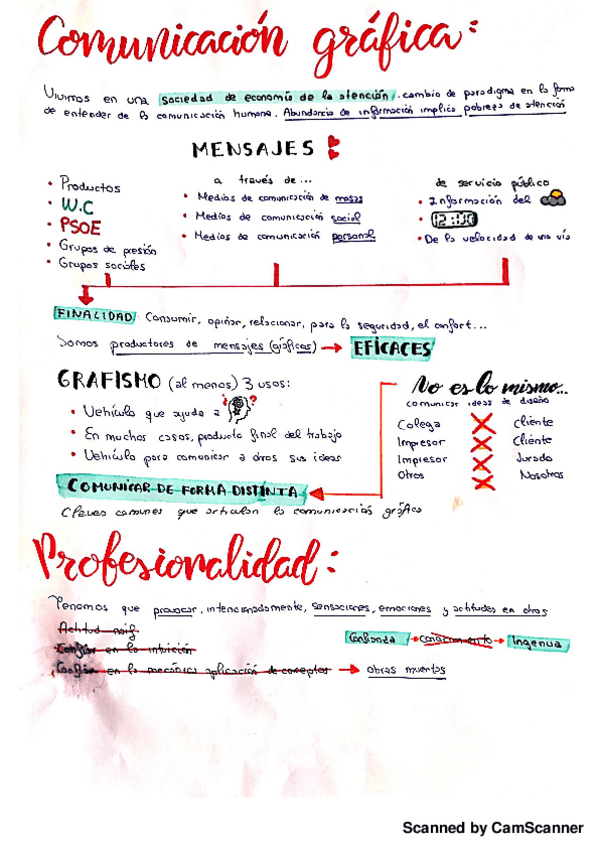 Comunicación gráfica:
Vivimos en una sociedad de economía de la atención. cambio de paradigma en la forma
de entender de la comunicación humana. Abundancia de información implica pobreza de atención
MENSAJES
• Productos
• W.C
• PSOE
• Grupos de presión
• Grupos sociales
a través de...
• Medios de comunicación de masas
• Medios de comunicación social
• Medios de comunicación personal
de servicio público
• Información del
• 12:30
• De la velocidad de una vía
FINALIDAD: Consumir, opinar, relacionar, para la seguridad, el confort...
Somos productores de mensajes (gráficos) → EFICACES
GRAFISMO (al menos) 3 usos:
• Vehículo que ayuda a ?
• En muchos casos, producto final del trabajo
• Vehículo para comunicar a otros sus ideas
No es lo mismo...
comunicar ideas de diseño
Colega X Cliente
Impresor X Cliente
Impresor X Jurado
Otros X Nosotros
COMUNICAR DE FORMA DISTINTA
Claves comunes que articulan la comunicación gráfica
Profesionalidad:
Tenemos que provocar, intencionadamente, sensaciones, emociones y actitudes en otros
Actitud naif
Confiar en la intuición
Confiar en la mecánica aplicación de conceptos → obras muertas
Confianza → conocimiento → Ingenua
Scanned by CamScanner